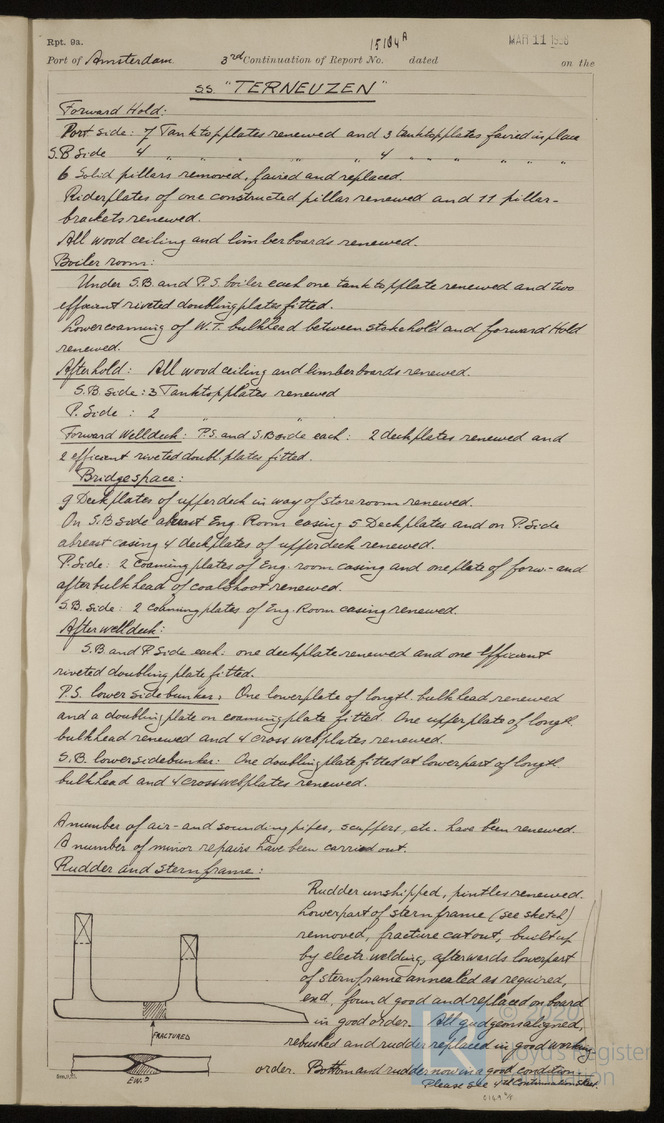 Rpt. 9a.
15104A
MAR 11 1936
Port of Amsterdam 3rd Continuation of Report No. dated on the
S.S. "TERNEUZEN"
Forward Hold:
Port side: 7 Tanktopplates renewed and 3 tanktopplates faired in place
S.B Side 4 " " " " 4 " " " " " "
6 Solid pillars removed, faired and replaced.
Riderplates of one constructed pillar renewed and 11 pillar-
brackets renewed.
All wood ceiling and limberboards renewed.
Boiler room:
Under S.B. and P.S. boiler each one tanktopplate renewed and two
efficient riveted doublingplates fitted.
Lowercoaming of W.T. bulkhead between stokehold and forward Hold
renewed.
Afterhold: All wood ceiling and limberboards renewed.
S.B. side: 3 Tanktopplates renewed
P. Side : 2 " "
Forward Welldeck: P.S. and S.B side each: 2 deckplates renewed and
2 efficient riveted doubl. plates fitted.
Bridgespace:
9 Deckplates of upperdeck in way of storeroom renewed.
On S.B side abreast Eng. Room casing 5 Deckplates and on P. Side
abreast casing 4 deckplates of upperdeck renewed.
P. Side: 2 Coaming plates of Eng. room casing and one plate of forw- and
after bulkhead of coalshoot renewed.
S.B. Side: 2 coaming plates of Eng. Room casing renewed.
Afterwelldeck:
S.B. and P. Side each: one deckplate renewed and one efficient
riveted doubling plate fitted.
P.S. lower sidebunker: One lowerplate of longtl. bulkhead renewed
and a doublingplate on coamingplate fitted. One upperplate of longtl.
bulkhead renewed and 4 cross webplates renewed.
S.B. lowersidebunker: One doublingplate fitted at lowerpart of longtl
bulkhead and 4 crosswebplates renewed.
A number of air- and sounding pipes, scuppers, etc. have been renewed.
A number of minor repairs have been carried out.
Rudder and sternframe:
Rudder unshipped, pintles renewed.
Lowerpart of sternframe (see sketch)
removed, fracture cut out, built up
by electr. welding, afterwards lowerpart
of sternframe annealed as required,
exd, found good and replaced on board
in good order. All gudgeons aligned,
rebushed and rudder replaced in good working
order. Bottom and rudder now in a good condition.
Please see 4th Continuation sheet.
FRACTURED
E.W.
© 2020
Lloyd's Register
Foundation